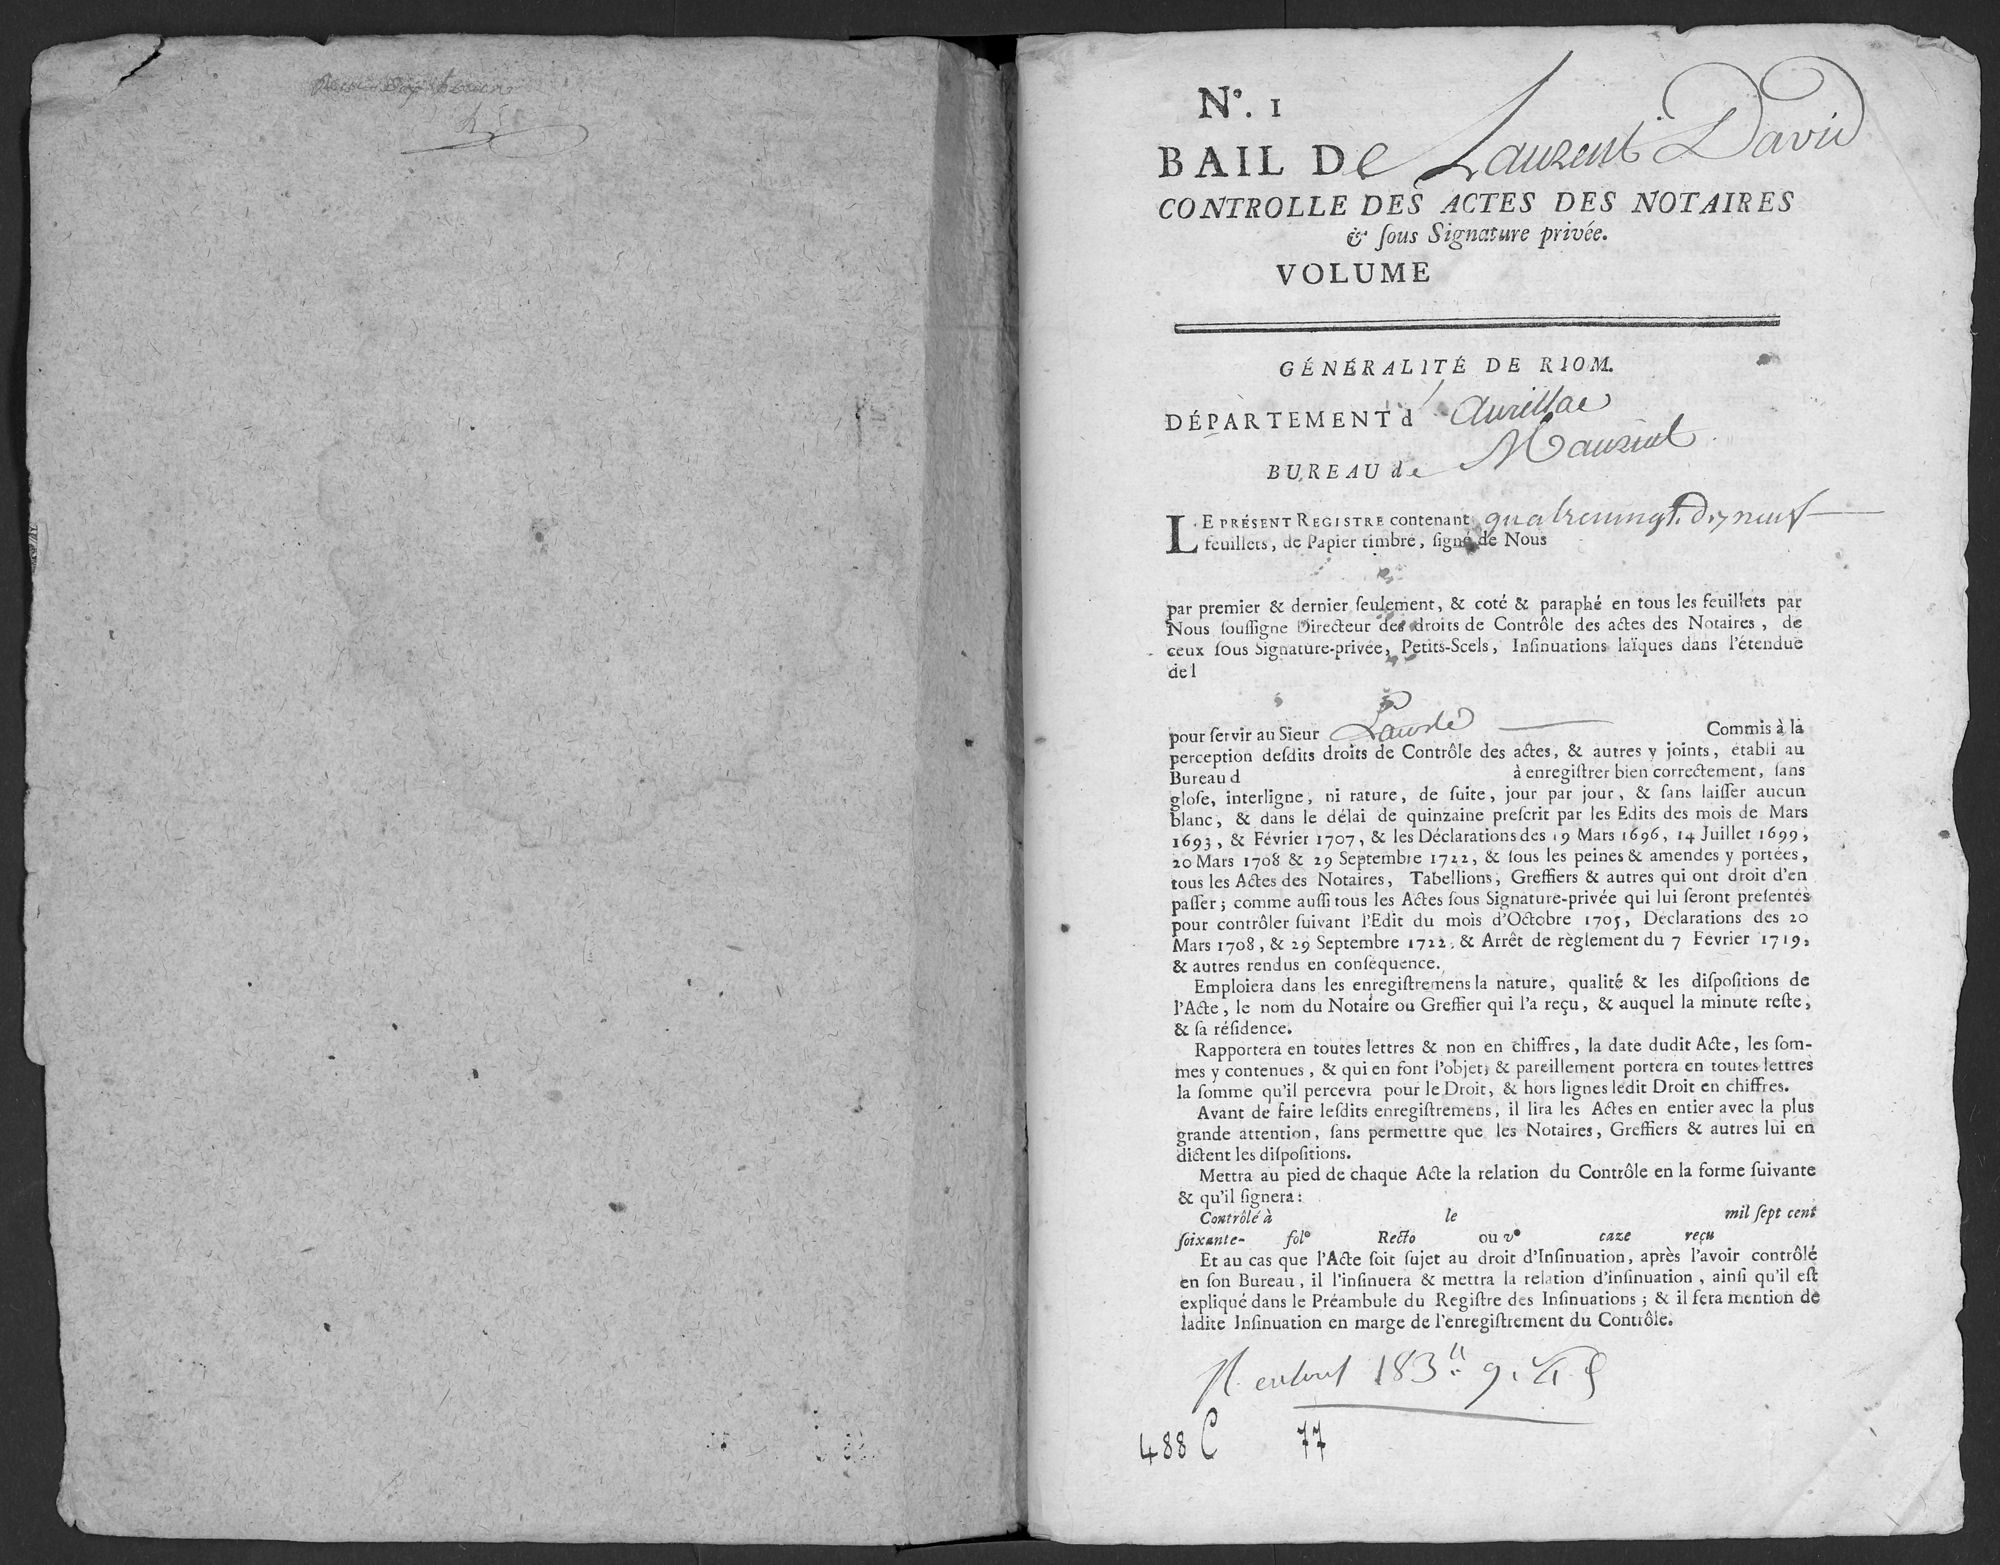 N°. 1
BAIL De Laurent David
CONTROLLE DES ACTES DES NOTAIRES
& ſous Signature privée.
VOLUME
GÉNÉRALITÉ DE RIOM.
DÉPARTEMENT d'Aurillac
BUREAU de Mauriac
LE PRÉSENT REGISTRE contenant quatrevingt dixneuf
feuillets, de Papier timbré, ſigné de Nous
par premier & dernier ſeulement, & coté & paraphé en tous les feuillets par
Nous ſouſſigne Directeur des droits de Contrôle des actes des Notaires, de
ceux ſous Signature-privée, Petits-Scels, Inſinuations laïques dans l'étendue
del
pour ſervir au Sieur Commis à la
perception deſdits droits de Contrôle des actes, & autres y joints, établi au
Bureau d à enregiſtrer bien correctement, ſans
gloſe, interligne, ni rature, de ſuite, jour par jour, & ſans laiſſer aucun
blanc, & dans le délai de quinzaine preſcrit par les Edits des mois de Mars
1693, & Février 1707, & les Déclarations des 19 Mars 1696, 14 Juillet 1699,
20 Mars 1708 & 29 Septembre 1722, & ſous les peines & amendes y portées,
tous les Actes des Notaires, Tabellions, Greffiers & autres qui ont droit d'en
paſſer; comme auſſi tous les Actes ſous Signature-privée qui lui ſeront preſentés
pour contrôler ſuivant l'Edit du mois d'Octobre 1705, Déclarations des 20
Mars 1708, & 29 Septembre 1722, & Arrêt de règlement du 7 Février 1719,
& autres rendus en conſéquence.
Emploiera dans les enregiſtremens la nature, qualité & les diſpoſitions de
l'Acte, le nom du Notaire ou Greffier qui l'a reçu, & auquel la minute reſte,
& ſa réſidence.
Rapportera en toutes lettres & non en chiffres, la date dudit Acte, les ſom-
mes y contenues, & qui en font l'objet; & pareillement portera en toutes lettres
la ſomme qu'il percevra pour le Droit, & hors lignes ledit Droit en chiffres.
Avant de faire leſdits enregiſtremens, il lira les Actes en entier avec la plus
grande attention, ſans permettre que les Notaires, Greffiers & autres lui en
dictent les diſpoſitions.
Mettra au pied de chaque Acte la relation du Contrôle en la forme ſuivante
& qu'il ſignera:
Contrôlé à le mil ſept cent
ſoixante- fol° Recto ou v° caze reçu
Et au cas que l'Acte ſoit ſujet au droit d'Inſinuation, après l'avoir contrôlé
en ſon Bureau, il l'inſinuera & mettra la relation d'inſinuation, ainſi qu'il eſt
expliqué dans le Préambule du Regiſtre des Inſinuations; & il ſera mention de
ladite Inſinuation en marge de l'enregiſtrement du Contrôle.
488 C 77